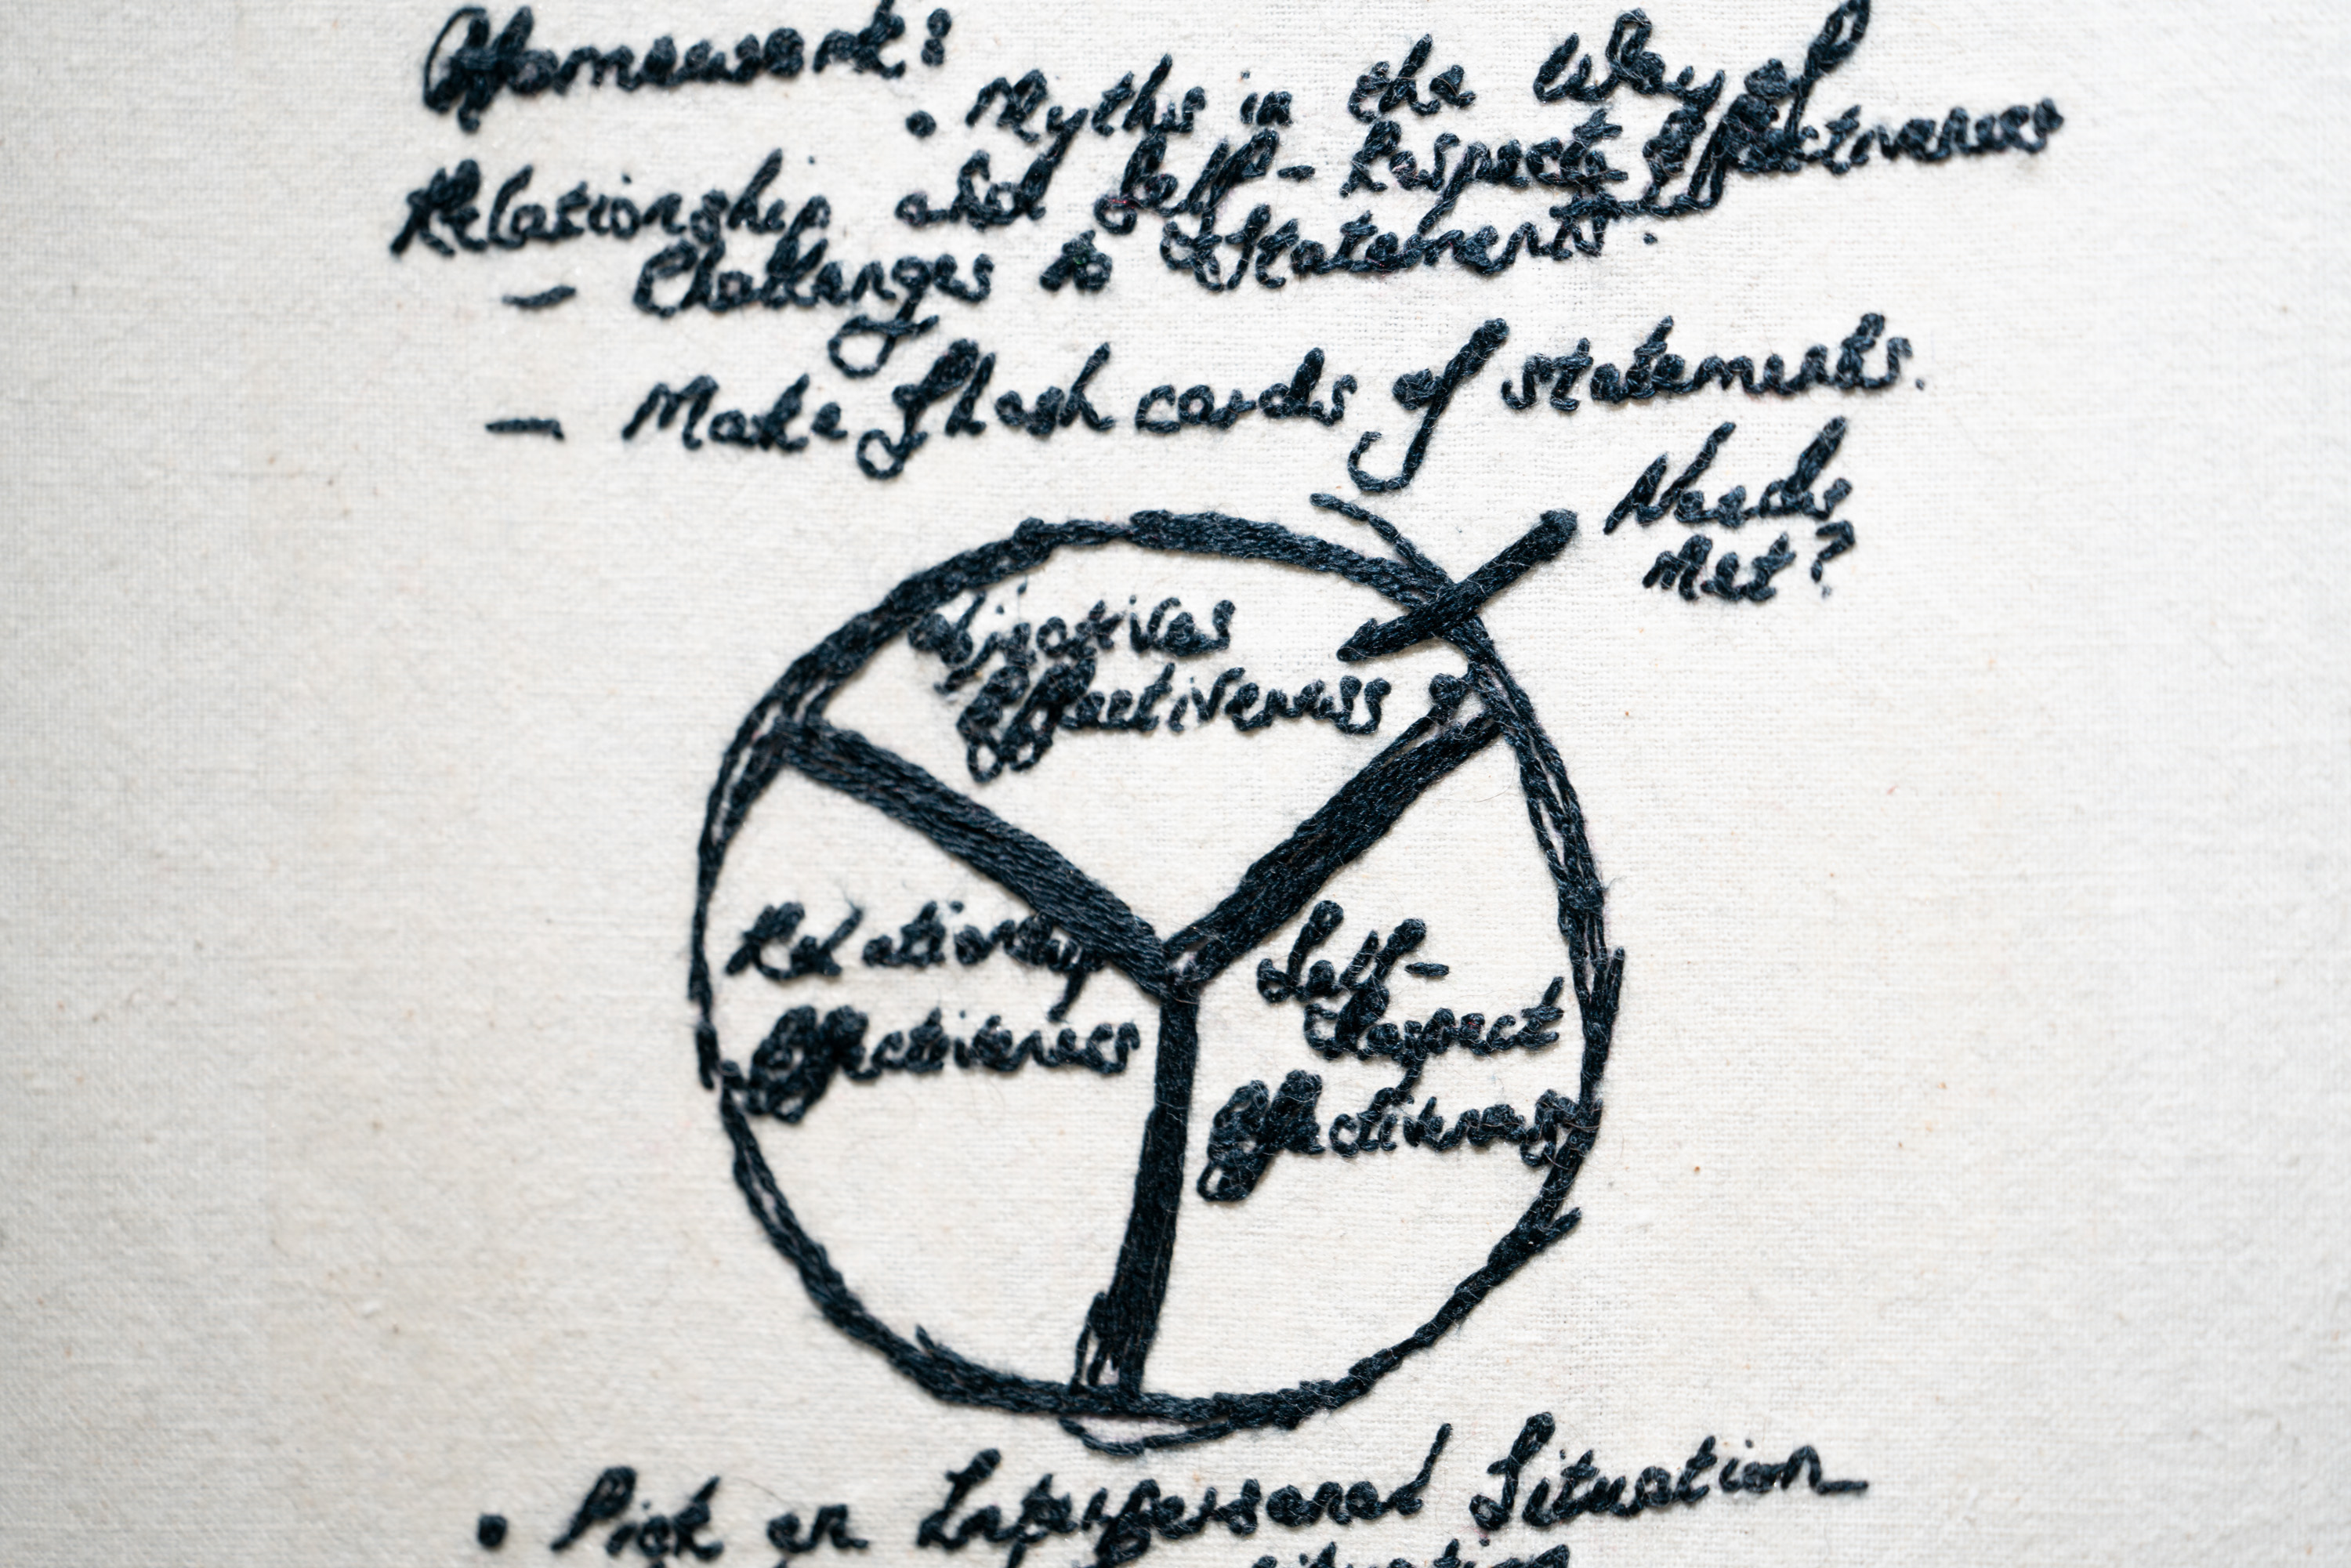 Homework:
• Myths in the Way of
Relationship and Self-Respect Effectiveness
— Challenges to Statements.
— Make flash cards of statements.
Needs
Met?
Effectiveness
Relationship
Effectiveness
Self-
Respect
Effectiveness
• Pick an Interpersonal Situation
situation